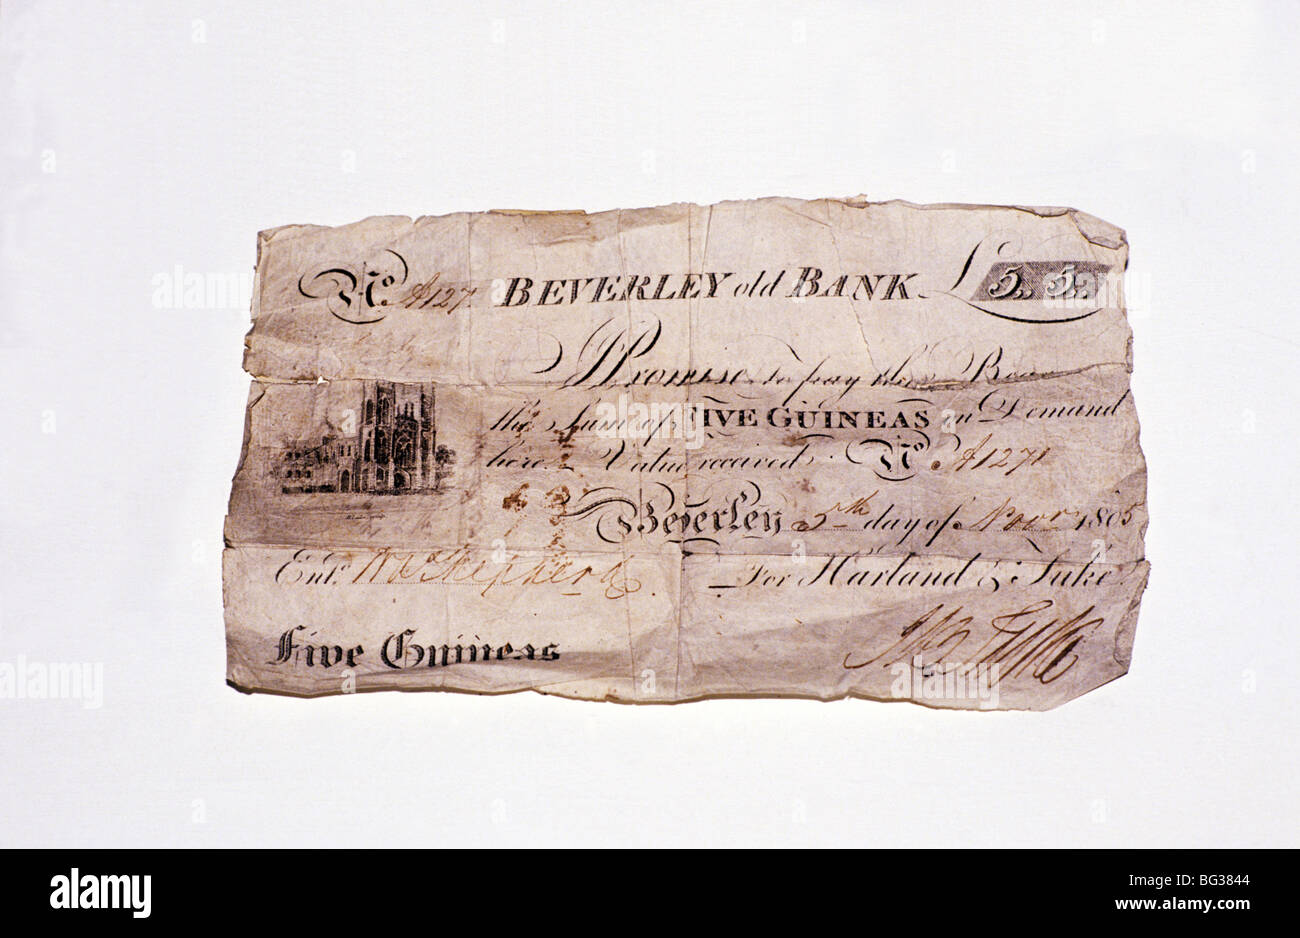 No A127 BEVERLEY old BANK £ 5,, 5,,
I Promise to pay the Bearer
the Sum of FIVE GUINEAS on Demand
here Value received No A1271
Beverley 5th day of Novr 1805
Entd Wm Shepherd For Harland & Tuke
Five Guineas
alamy
Image ID: BG3844
www.alamy.com